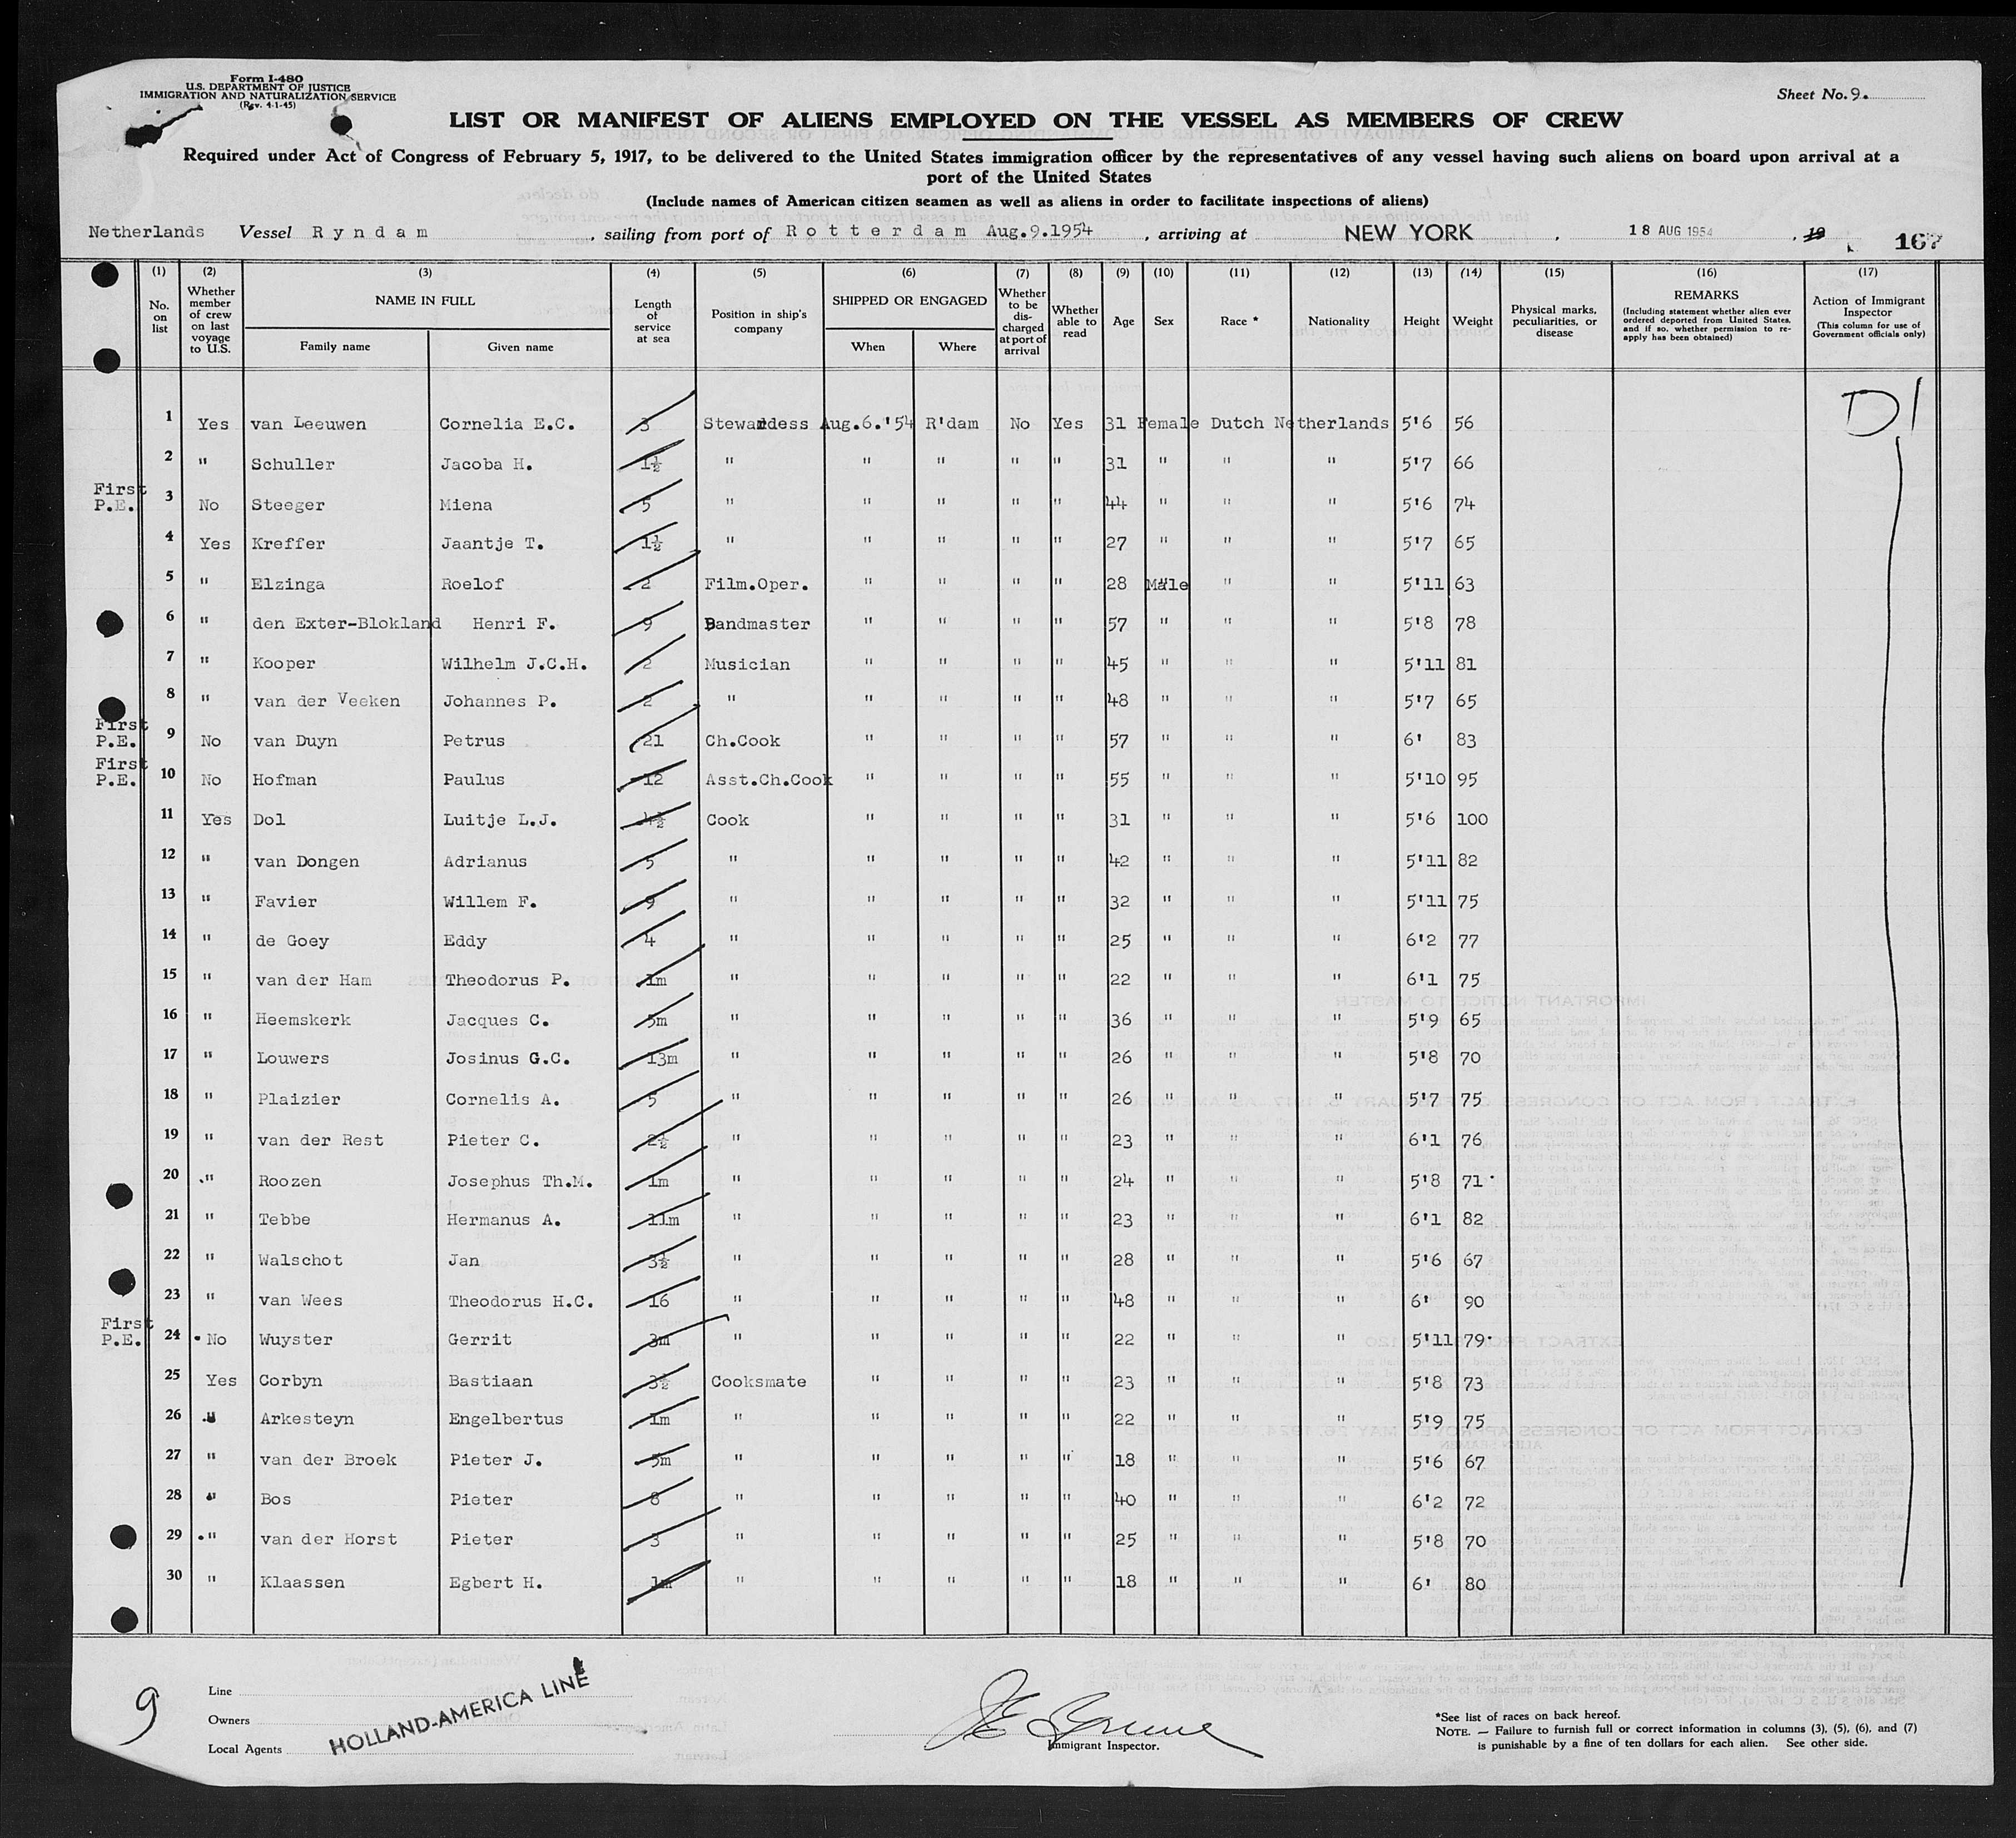 Form I-480
U.S. DEPARTMENT OF JUSTICE
IMMIGRATION AND NATURALIZATION SERVICE
(Rev. 4-1-45)
Sheet No. 9.
LIST OR MANIFEST OF ALIENS EMPLOYED ON THE VESSEL AS MEMBERS OF CREW
Required under Act of Congress of February 5, 1917, to be delivered to the United States immigration officer by the representatives of any vessel having such aliens on board upon arrival at a
port of the United States
(Include names of American citizen seamen as well as aliens in order to facilitate inspections of aliens)
Netherlands Vessel Ryndam, sailing from port of Rotterdam Aug.9.1954, arriving at NEW YORK, 18 AUG 1954, 19 167
(1) (2) (3) (4) (5) (6) (7) (8) (9) (10) (11) (12) (13) (14) (15) (16) (17)
No. on list
Whether member of crew on last voyage to U.S.
NAME IN FULL
Family name
Given name
Length of service at sea
Position in ship's company
SHIPPED OR ENGAGED
When
Where
Whether to be discharged at port of arrival
Whether able to read
Age
Sex
Race *
Nationality
Height
Weight
Physical marks, peculiarities, or disease
REMARKS
(Including statement whether alien ever ordered deported from United States, and if so, whether permission to re-apply has been obtained)
Action of Immigrant Inspector
(This column for use of Government officials only)
D1
1 Yes van Leeuwen Cornelia E.C. 3 Stewardess Aug.6.'54 R'dam No Yes 31 Female Dutch Netherlands 5'6 56
2 " Schuller Jacoba H. 1½ " " " " " 31 " " " 5'7 66
First P.E. 3 No Steeger Miena 5 " " " " " 44 " " " 5'6 74
4 Yes Kreffer Jaantje T. 1½ " " " " " 27 " " " 5'7 65
5 " Elzinga Roelof 2 Film.Oper. " " " " 28 Male " " 5'11 63
6 " den Exter-Blokland Henri F. 9 Bandmaster " " " " 57 " " " 5'8 78
7 " Kooper Wilhelm J.C.H. 2 Musician " " " " 45 " " " 5'11 81
8 " van der Veeken Johannes P. 2 " " " " " 48 " " " 5'7 65
First P.E. 9 No van Duyn Petrus 21 Ch.Cook " " " " 57 " " " 6' 83
First P.E. 10 No Hofman Paulus 12 Asst.Ch.Cook " " " " 55 " " " 5'10 95
11 Yes Dol Luitje L.J. 4½ Cook " " " " 31 " " " 5'6 100
12 " van Dongen Adrianus 5 " " " " " 42 " " " 5'11 82
13 " Favier Willem F. 9 " " " " " 32 " " " 5'11 75
14 " de Goey Eddy 4 " " " " " 25 " " " 6'2 77
15 " van der Ham Theodorus P. 1m " " " " " 22 " " " 6'1 75
16 " Heemskerk Jacques C. 5m " " " " " 36 " " " 5'9 65
17 " Louwers Josinus G.C. 13m " " " " " 26 " " " 5'8 70
18 " Plaizier Cornelis A. 5 " " " " " 26 " " " 5'7 75
19 " van der Rest Pieter C. 2½ " " " " " 23 " " " 6'1 76
20 " Roozen Josephus Th.M. 1m " " " " " 24 " " " 5'8 71
21 " Tebbe Hermanus A. 11m " " " " " 23 " " " 6'1 82
22 " Walschot Jan 3½ " " " " " 28 " " " 5'6 67
23 " van Wees Theodorus H.C. 16 " " " " " 48 " " " 6' 90
First P.E. 24 No Wuyster Gerrit 3m " " " " " 22 " " " 5'11 79
25 Yes Corbyn Bastiaan 3½ Cooksmate " " " " 23 " " " 5'8 73
26 " Arkesteyn Engelbertus 1m " " " " " 22 " " " 5'9 75
27 " van der Broek Pieter J. 5m " " " " " 18 " " " 5'6 67
28 " Bos Pieter 8 " " " " " 40 " " " 6'2 72
29 " van der Horst Pieter 3 " " " " " 25 " " " 5'8 70
30 " Klaassen Egbert H. 1m " " " " " 18 " " " 6' 80
9
Line
Owners
Local Agents
HOLLAND-AMERICA LINE
Immigrant Inspector.
*See list of races on back hereof.
NOTE. — Failure to furnish full or correct information in columns (3), (5), (6), and (7)
is punishable by a fine of ten dollars for each alien. See other side.